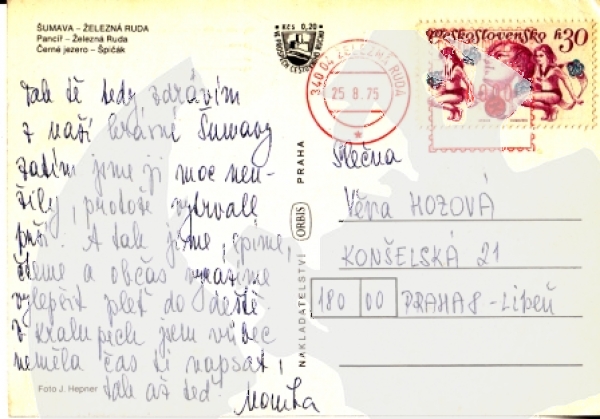 ŠUMAVA – ŽELEZNÁ RUDA
Pancíř – Železná Ruda
Černé jezero – Špičák
Tak tě tedy zdravím
z naší krásné Šumavy
zatím jsme ji moc neu-
žily, protože vytrvale
prší. A tak jíme, spíme,
čteme a občas vyrazíme
vylepšit pleť do deště.
V Kralupech jsem vůbec
neměla čas ti napsat,
tak až teď.
Monika
Foto J. Hepner
NAKLADATELSTVÍ ORBIS PRAHA
Kčs 0,20
340 04 ŽELEZNÁ RUDA
25.8.75
Československo h30
Slečna
Věra HOZOVÁ
KONŠELSKÁ 21
180 00 PRAHA 8 - Libeň